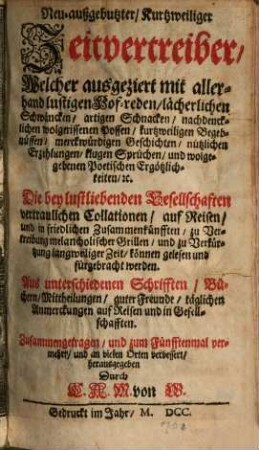 Neu-außgebutzter/ Kurtzweiliger
Zeitvertreiber/
Welcher ausgeziert mit aller-
hand lustigen Hof-reden/lächerlichen
Schwäncken/ artigen Schnacken/ nachdenck-
lichen wolgerissenen Possen/ kurtzweiligen Begeb-
nüssen/ merckwürdigen Geschichten/ nützlichen
Erzehlungen/ klugen Sprüchen/ und wolge-
gebenen Poetischen Ergötzlich-
keiten/ ꝛc.
Die bey lustliebenden Gesellschafften
vertraulichen Collationen/ auf Reisen/
und in friedlichen Zusammenkünfften/ zu Ver-
treibung melancholischer Grillen/ und zu Verkür-
tzung langweiliger Zeit/ können gelesen und
fürgebracht werden.
Aus unterschiedenen Schrifften/ Bü-
chern/Mittheilungen/ guter Freunde/ täglichen
Anmerckungen auf Reisen und in Gesell-
schafften.
Zusammengetragen/ und zum Fünfftenmal ver-
mehret/ und an vielen Orten verbessert/
herausgegeben
Durch
C. A. M. von W.
Gedruckt im Jahr/ M. DCC.